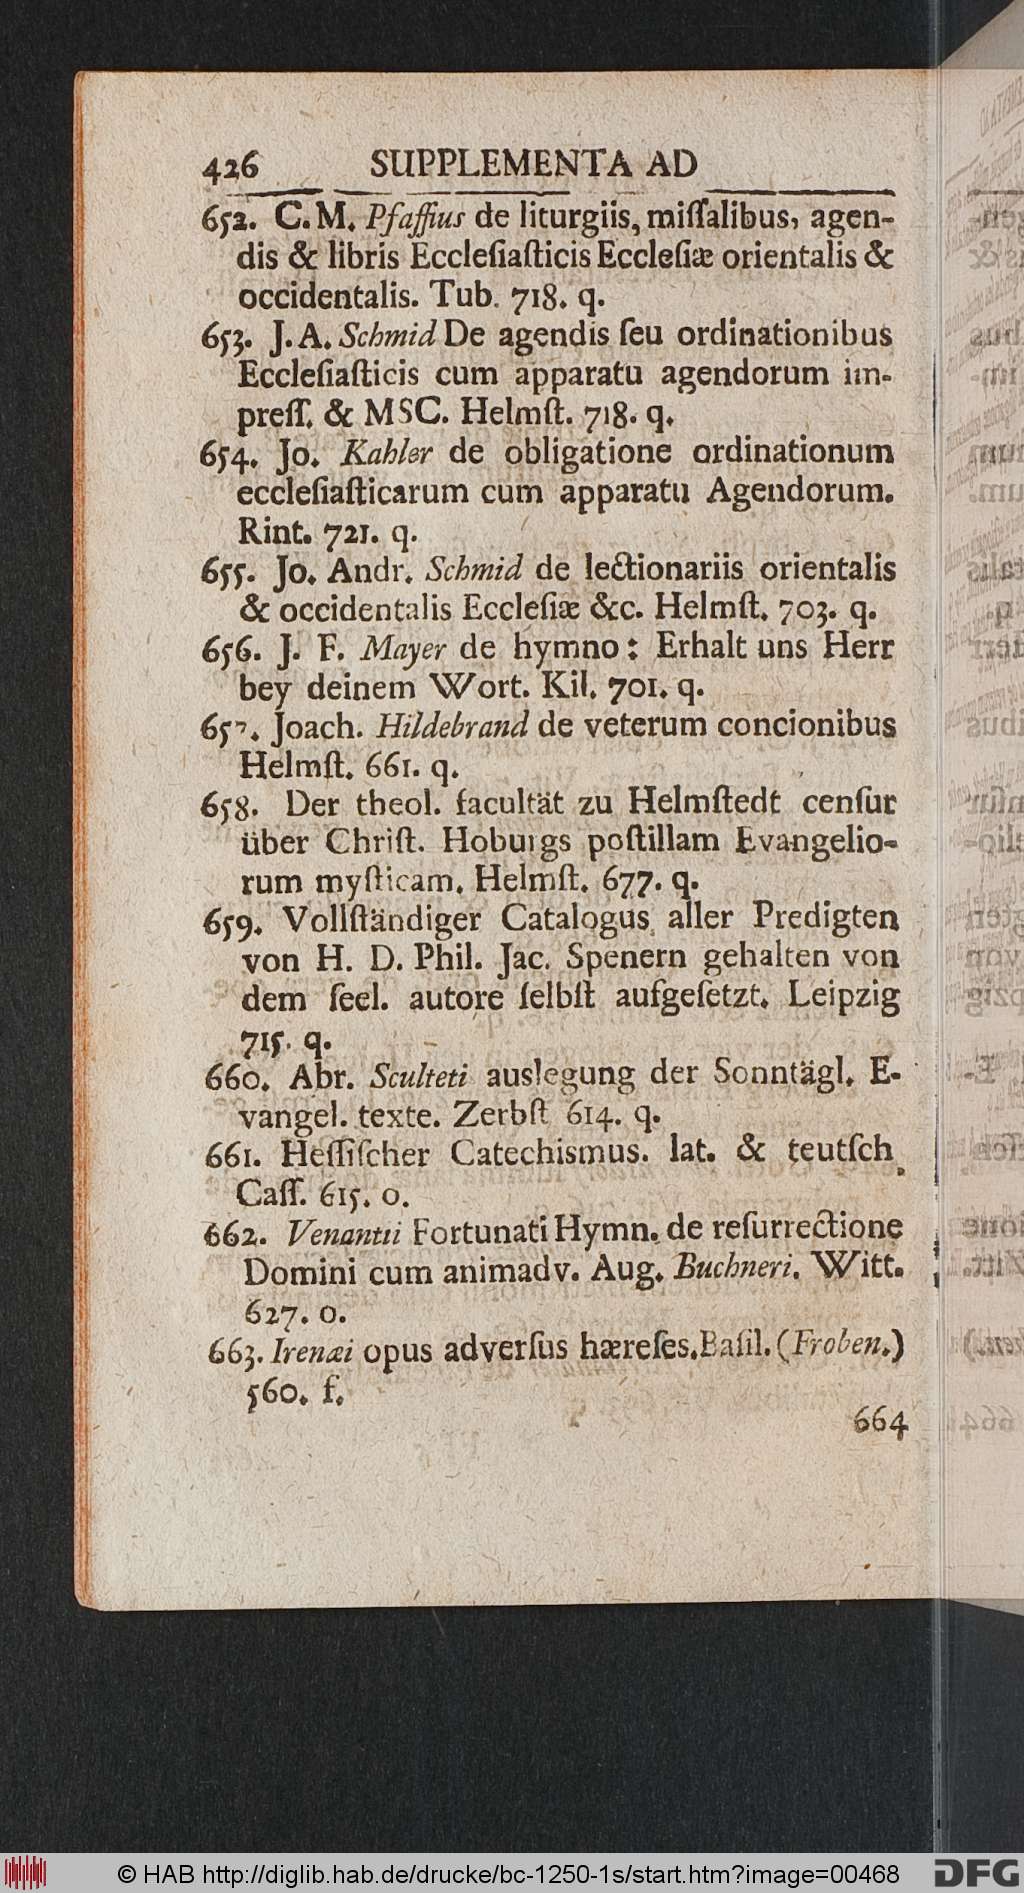 426 SUPPLEMENTA AD
652. C. M. Pfaffius de liturgiis, miſſalibus, agen-
dis & libris Eccleſiaſticis Eccleſiæ orientalis &
occidentalis. Tub. 718. q.
653. J. A. Schmid De agendis ſeu ordinationibus
Eccleſiaſticis cum apparatu agendorum im-
preſſ. & MSC. Helmſt. 718. q.
654. Jo. Kahler de obligatione ordinationum
eccleſiaſticarum cum apparatu Agendorum.
Rint. 721. q.
655. Jo. Andr. Schmid de lectionariis orientalis
& occidentalis Eccleſiæ &c. Helmſt. 703. q.
656. J. F. Mayer de hymno: Erhalt uns Herr
bey deinem Wort. Kil. 701. q.
657. Joach. Hildebrand de veterum concionibus
Helmſt. 661. q.
658. Der theol. facultät zu Helmſtedt cenſur
über Chriſt. Hoburgs poſtillam Evangelio-
rum myſticam. Helmſt. 677. q.
659. Vollſtändiger Catalogus aller Predigten
von H. D. Phil. Jac. Spenern gehalten von
dem ſeel. autore ſelbſt aufgeſetzt. Leipzig
715. q.
660. Abr. Sculteti auslegung der Sonntägl. E-
vangel. texte. Zerbſt 614. q.
661. Heſſiſcher Catechismus. lat. & teutſch
Caſſ. 615. o.
662. Venantii Fortunati Hymn. de reſurrectione
Domini cum animadv. Aug. Buchneri. Witt.
627. o.
663. Irenæi opus adverſus hæreſes. Baſil. (Froben.)
560. f.
664
© HAB http://diglib.hab.de/drucke/bc-1250-1s/start.htm?image=00468
DFG